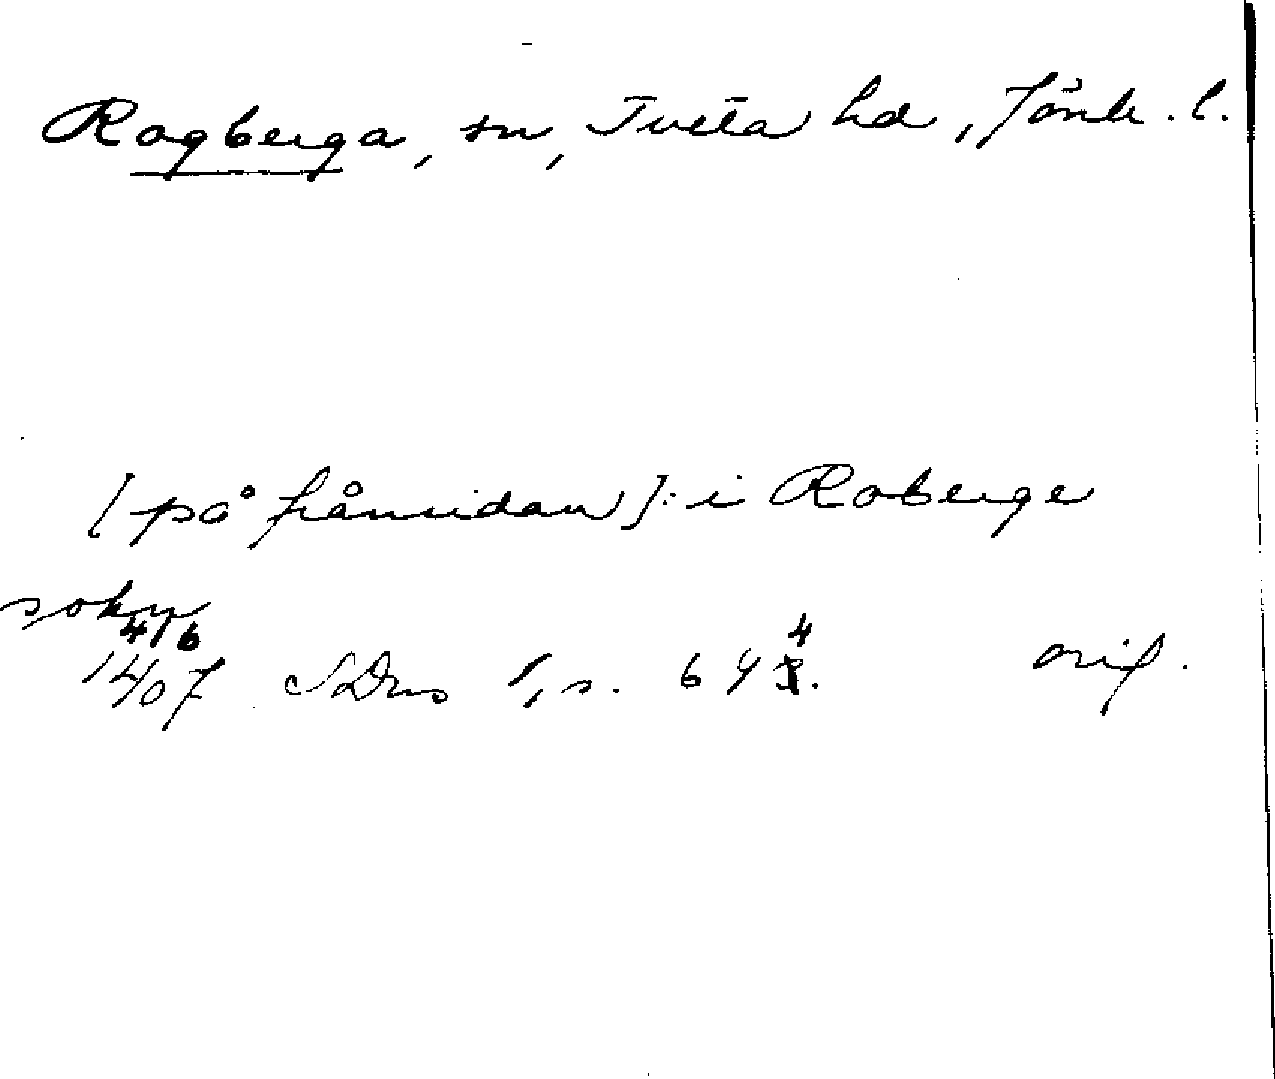 Rogberga, sn, Tveta hd, Jönk. l.
[på frånsidan]: i Roberge
sokn
4/6
1407 SDns 1, s. 644. orig.